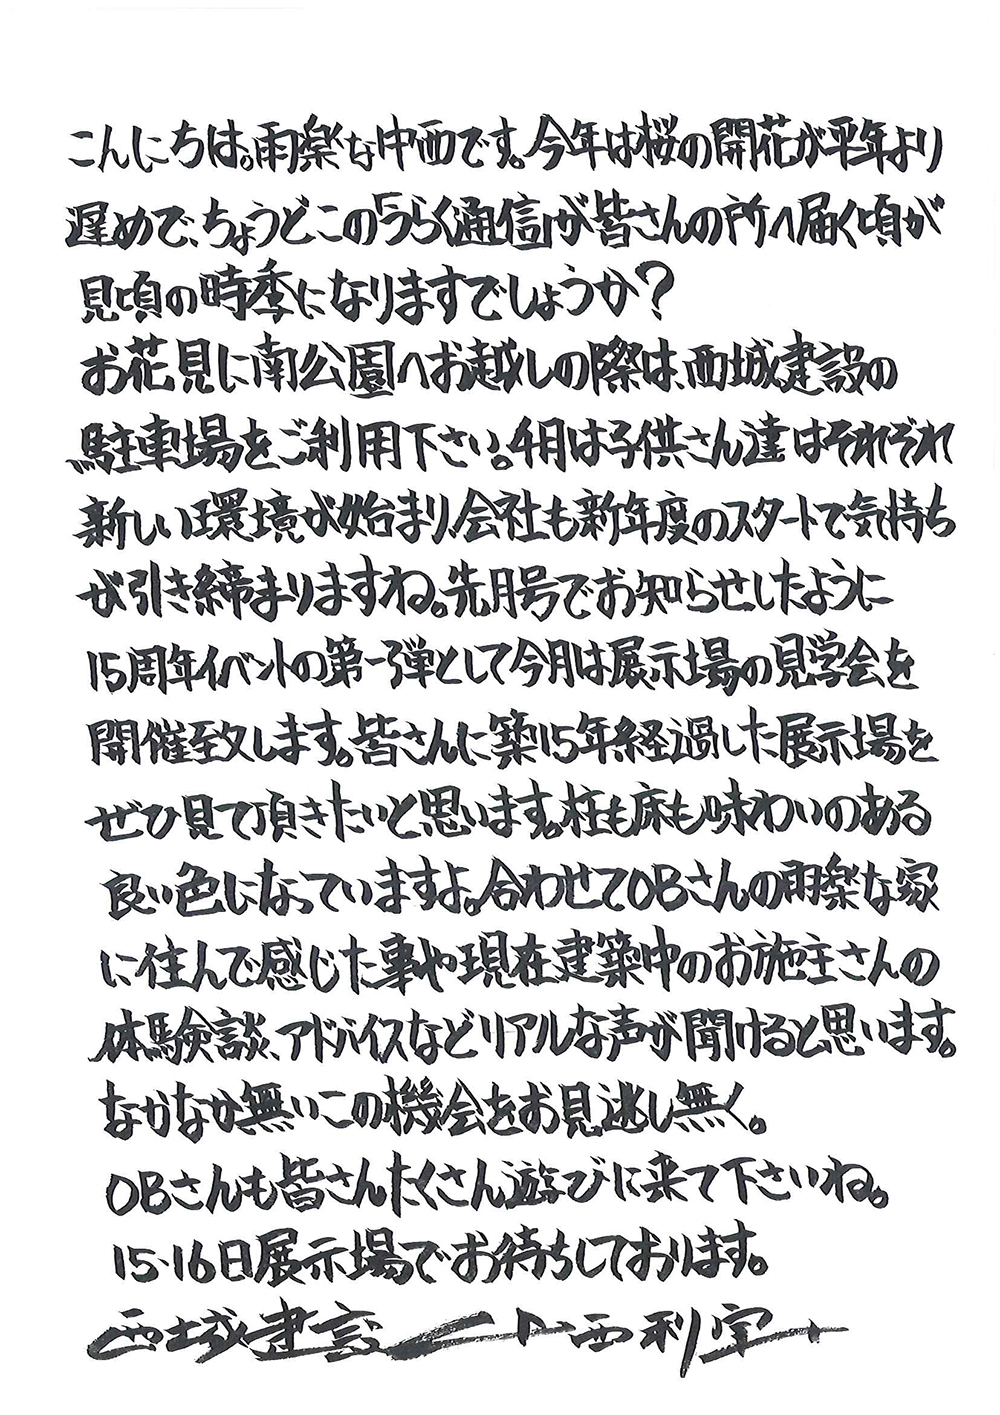 こんにちは。雨楽な中西です。今年は桜の開花が平年より
遅めで、ちょうどこの「うらく通信」が皆さんの所へ届く頃が
見頃の時季になりますでしょうか？
お花見に南公園へお越しの際は、西城建設の
駐車場をご利用下さい。4月は子供さん達はそれぞれ
新しい環境が始まり、会社も新年度のスタートで気持ち
が引き締まりますね。先月号でお知らせしたように
15周年イベントの第一弾として今月は展示場の見学会を
開催致します。皆さんに築15年経過した展示場を
ぜひ見て頂きたいと思います。柱も床も味わいのある
良い色になっていますよ。合わせてOBさんの雨楽な家
に住んで感じた事や現在建築中のお施主さんの
体験談、アドバイスなどリアルな声が聞けると思います。
なかなか無いこの機会をお見逃し無く。
OBさんも皆さんたくさん遊びに来て下さいね。
15・16日展示場でお待ちしております。
西城建設 中西利宰